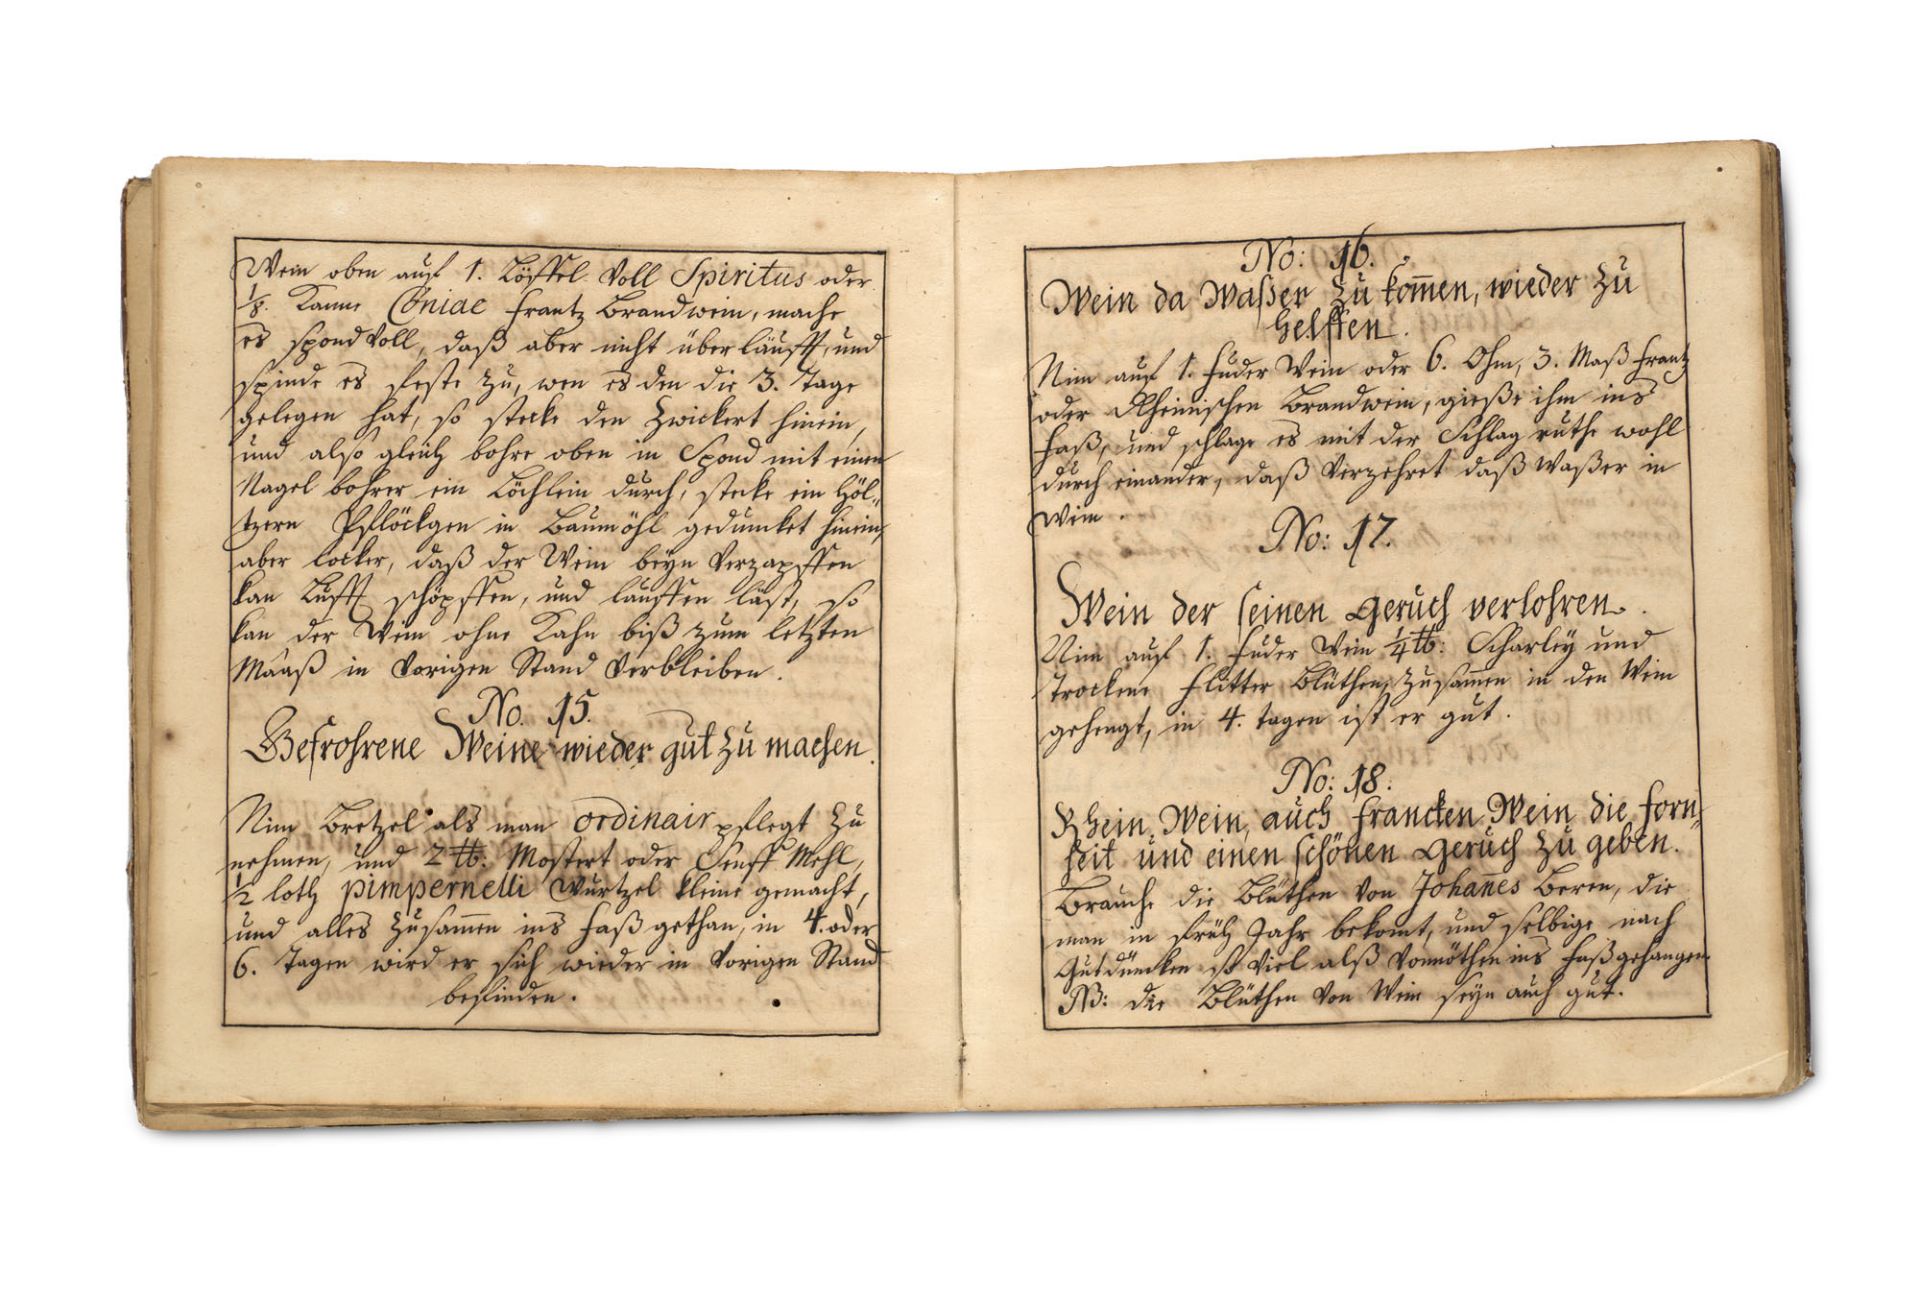 Wein oben auf 1. Löffel Voll Spiritus oder
1/8. Kanne Coniae Frantz Brandwein, mache
es spond Voll, daß aber nicht überläufft, und
spinde es feste zu, wen es den die 3. Tage
gelegen hat, so stecke den Zwickert hinein,
und also gleich bohre oben in Spond mit einen
Nagel bohrer ein Löchlein durch, stecke ein Höl-
tzern Pflöckgen in Baumöhl geduncket hinein,
aber locker, daß der Wein beyn Verzapffen
kan Lufft schöpffen, und lauffen läst, so
kan der Wein ohne Kahn biß zum letzten
Maaß in Vorigen Stand Verbleiben.
No. 15.
Gefrohrene Weine wieder gut zu machen.
Nim Bretzel als man ordinair pflegt zu
nehmen, und 2 ℔. Mostert oder Senff Mehl,
1/2 loth pimpernelli Wurtzel kleine gemacht,
und alles zusam̅en ins Faß gethan, in 4. oder
6. Tagen wird er sich wieder in Vorigen Stand
befinden.
No: 16.
Wein da Waßer zu kom̅en, wieder zu
helffen.
Nim auf 1. Fuder Wein oder 6. Ohm, 3. Maß Frantz
oder Rheinischen Brandwein, gieße ihm ins
Faß, und schlage es mit der Schlag ruthe wohl
durch einander, daß Verzehret daß Waßer in
Wein.
No: 17.
Wein der seinen Geruch verlohren.
Nim auf 1. Fuder Wein 1/4 ℔: Scharley und
trockene Flitter Blüthen, zusam̅en in den Wein
gehengt, in 4. tagen ist er gut.
No: 18.
Rhein Wein, auch Francken Wein die Forn-
heit und einen schönen Geruch zu geben.
Brauche die Blüthen Von Johan̅es Beren, die
man in früh Jahr bekomt, und selbige nach
Gutdüncken so Viel alß Vonnöthen ins Faß gehangen.
NB: die Blüthen Von Wein seyn auch gut.